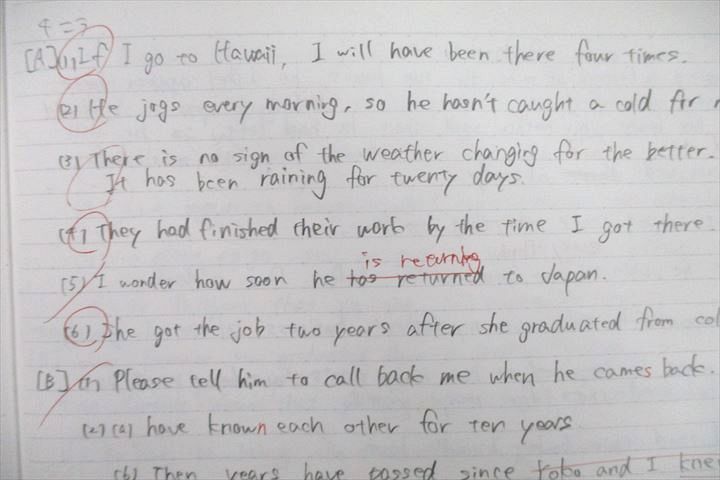 4 = 3
[A] (1) If I go to Hawaii, I will have been there four times.
(2) He jogs every morning, so he hasn't caught a cold for
(3) There is no sign of the weather changing for the better.
It has been raining for twenty days.
(4) They had finished their work by the time I got there.
is returning
(5) I wonder how soon he has returned to Japan.
(6) She got the job two years after she graduated from col
[B] (1) Please tell him to call back me when he cames back.
(2) (a) have known each other for ten years
(b) Then years have passed since and I kne